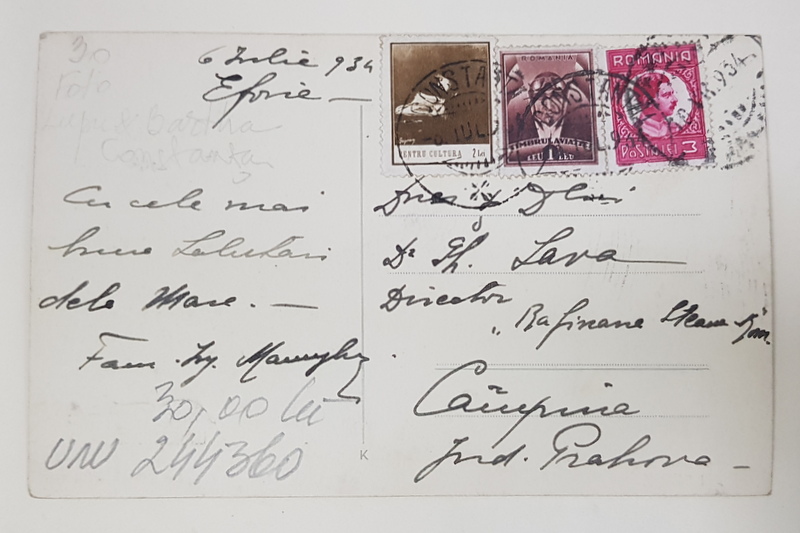 6 Iulie 934
Eforie —
30
Foto
Constanța
Cu cele mai
bune Salutări
dela Mare. —
Fam. Ig.
30,00 lei
244360
PENTRU CULTURA 2 Lei
ROMANIA
TIMBRUL AVIAȚIEI
1 LEU
ROMANIA
POSTA LEI 3
CONSTANȚA
6 IUL 934
Dnei & Dlui
Dr Gh. Sava
Director
„Rafinaria Steaua Rom.
Câmpina
Jud. Prahova —
K